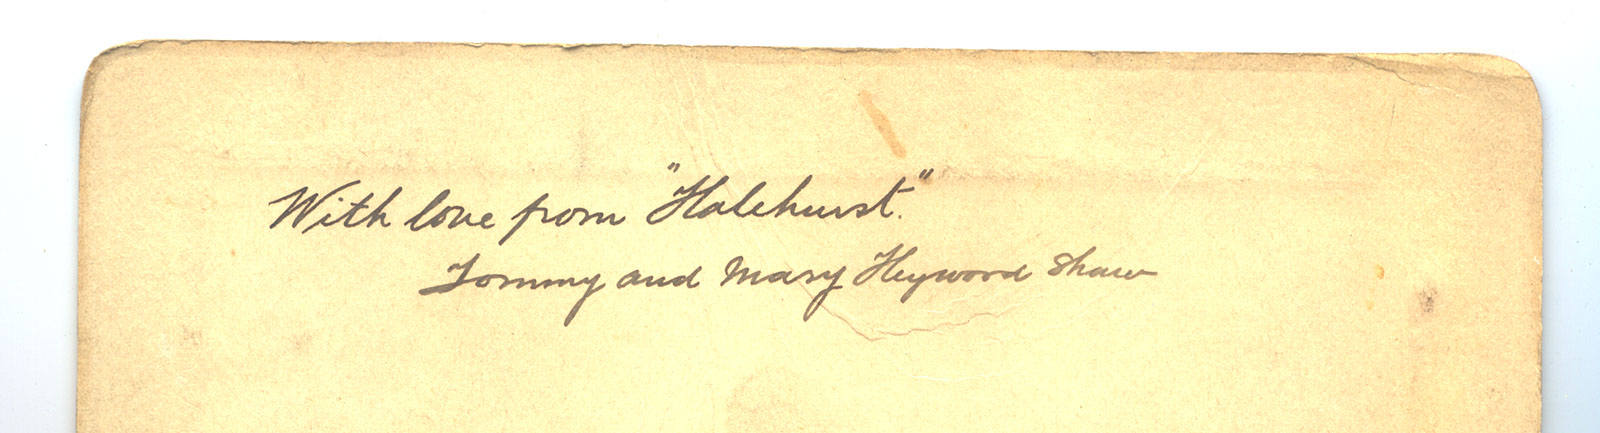 With love from "Halehurst."
Tommy and Mary Heywood Shaw